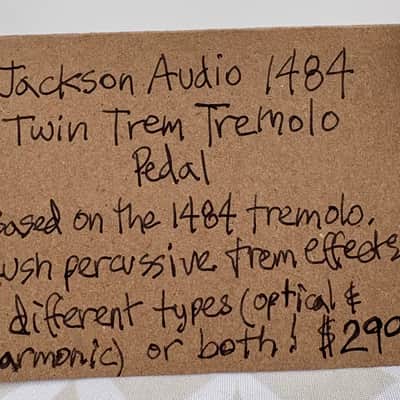 Jackson Audio 1484
Twin Trem Tremolo
Pedal
Based on the 1484 tremolo.
ush percussive trem effects
different types (optical &
armonic) or both! $290